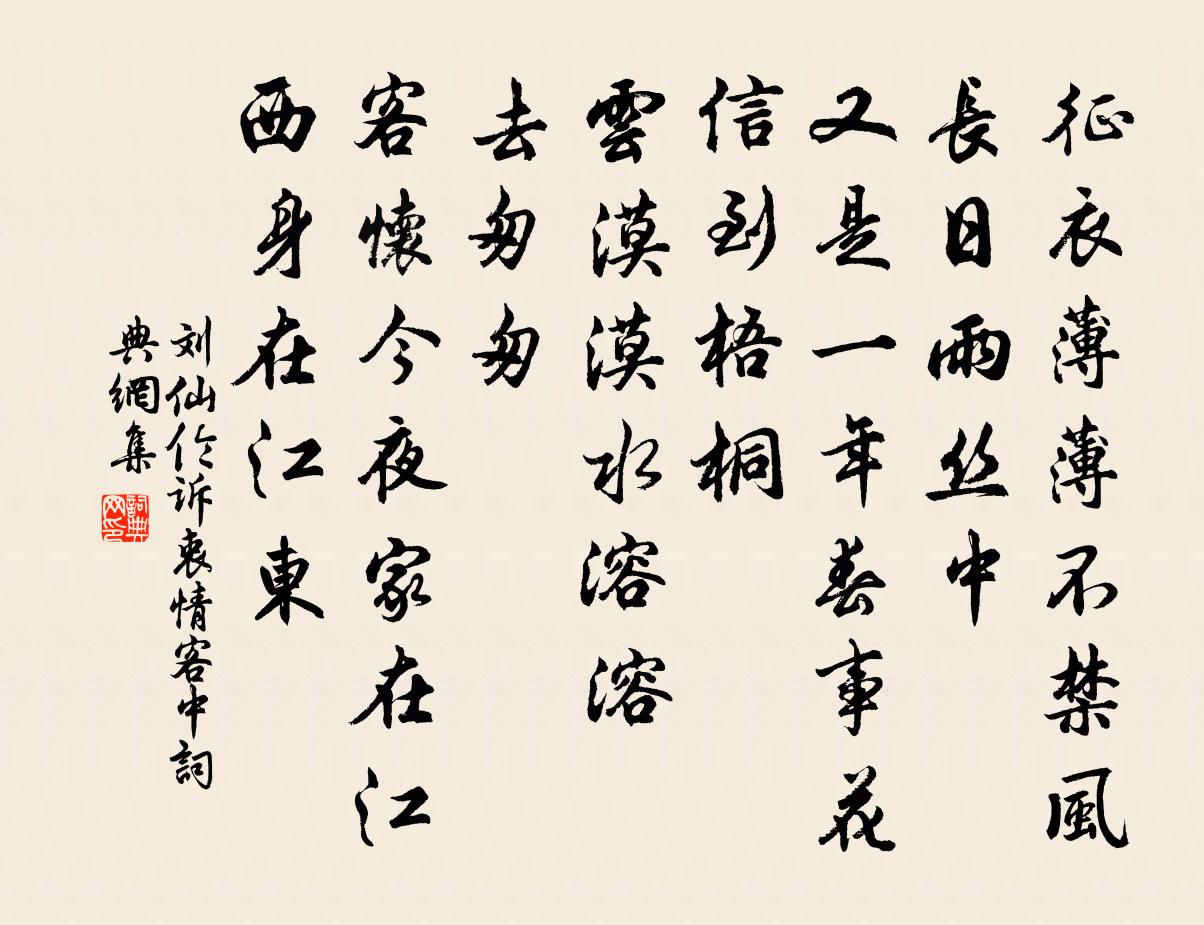 征衣薄薄不禁風
長日雨丝中
又是一年春事花
信到梧桐
雲漠漠水溶溶
去匆匆
客懷今夜家在江
西身在江東
刘仙伦诉衷情客中詞
典網集
詞典网印